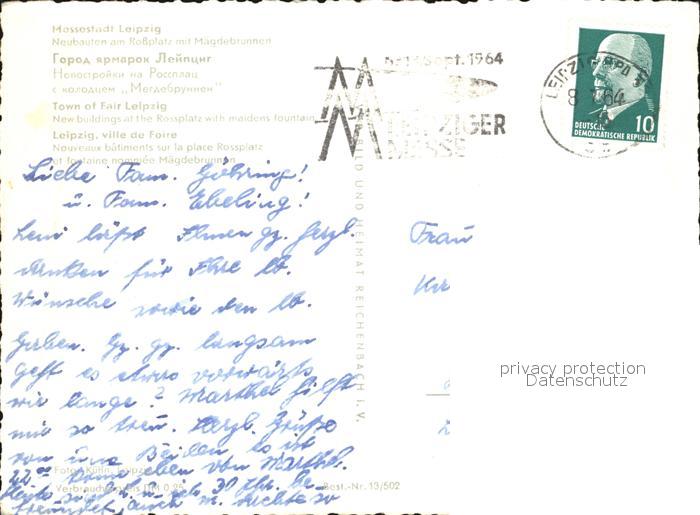 Messestadt Leipzig
Neubauten am Roßplatz mit Mägdebrunnen
Город ярмарок Лейпциг
Новостройки на Россплац
с колодцем „Мегдебруннен"
Town of Fair Leipzig
New buildings at the Rossplatz with maidens fountain
Leipzig, ville de Foire
Nouveaux bâtiments sur la place Rossplatz
et fontaine nommée Mägdebrunnen
Sept. 1964
LEIPZIGER
MESSE
LEIPZIG
64
DEUTSCHE
DEMOKRATISCHE REPUBLIK
10
Liebe Fam. Göhring!
u. Fam. Ebeling!
läßt Ihnen gz. herzl.
danken für Ihre lb.
Wünsche sowie den lb.
Gaben. Gz. gz. langsam
geht es etwas vorwärts
wie lange? Marthel hilft
mir so treu. Herzl. Grüße
von uns Beiden
eben von Marthel.
BILD UND HEIMAT REICHENBACH I. V.
Frau
privacy protection
Datenschutz
Foto: Kühn, Leipzig
Verbraucherpreis DM 0,25
Best.-Nr. 13/502